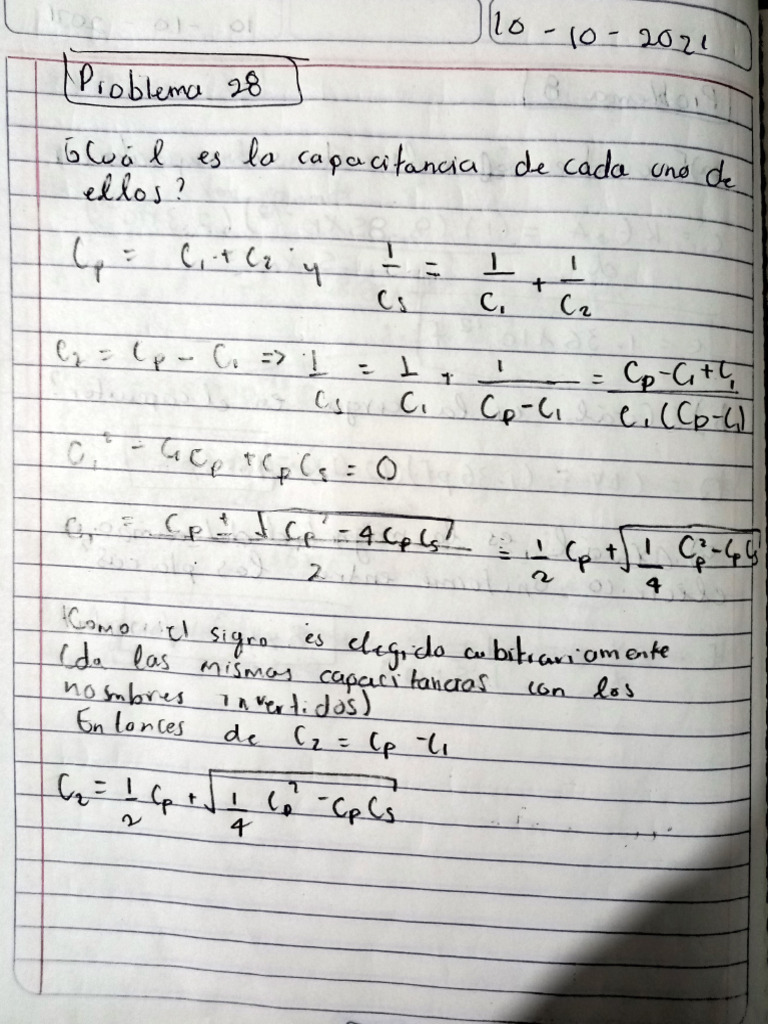 10-10-2021
Problema 28
¿Cuál es la capacitancia de cada uno de
ellos?
Cp = C1 + C2 y 1/Cs = 1/C1 + 1/C2
C2 = Cp - C1 => 1/Cs = 1/C1 + 1/(Cp-C1) = (Cp-C1+C1)/(C1(Cp-C1))
C1² - C1Cp + CpCs = 0
C1 = (Cp ± √(Cp² - 4CpCs))/2 = 1/2 Cp + √(1/4 Cp² - CpCs)
Como el signo es elegido arbitrariamente
(da las mismas capacitancias con los
nombres invertidos)
Entonces de C2 = Cp - C1
C2 = 1/2 Cp + √(1/4 Cp² - CpCs)